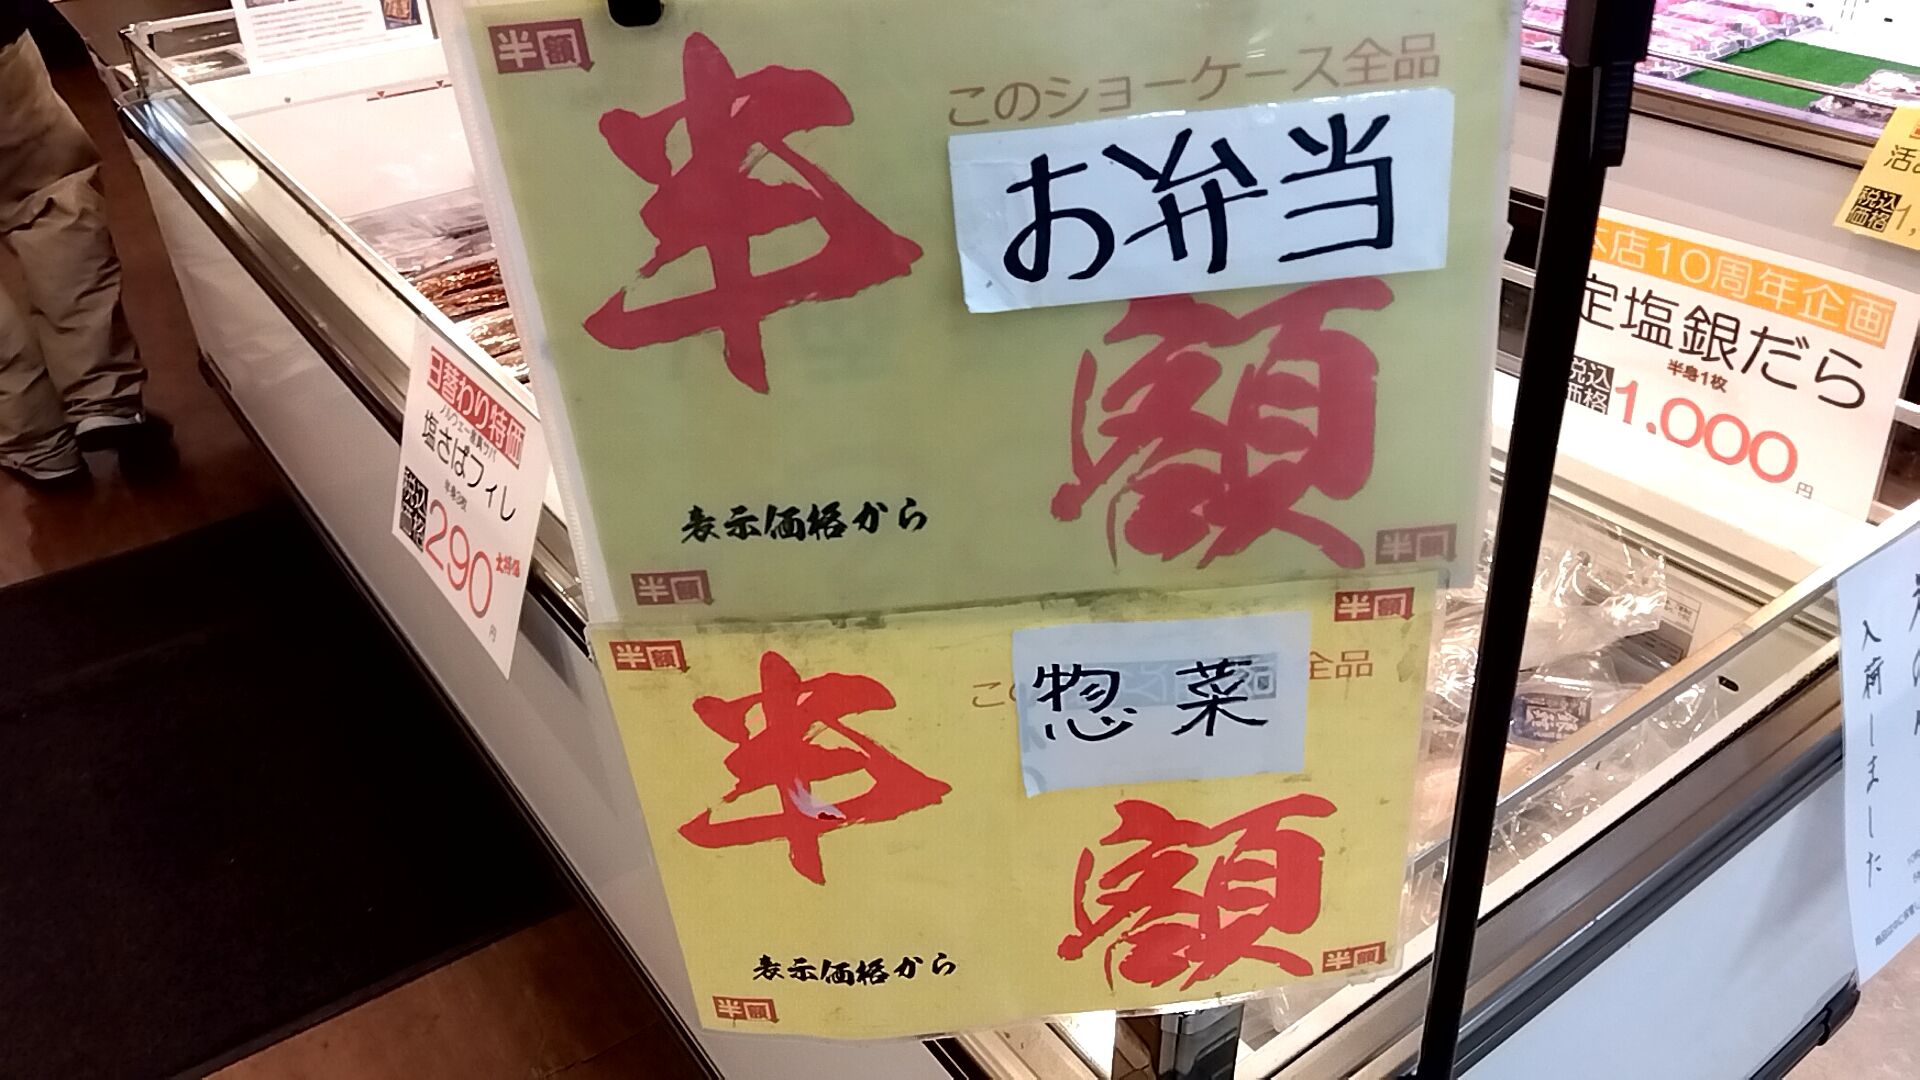 半額
このショーケース全品
お弁当
半額
表示価格から
半額
半額
半額
半額
全品
惣菜
半額
表示価格から
半額
半額
日替わり特価
塩さばフィレ
税込価格
290
円
本店10周年企画
定塩銀だら
半身1枚
税込価格
1,000
円
税込価格
入荷しました